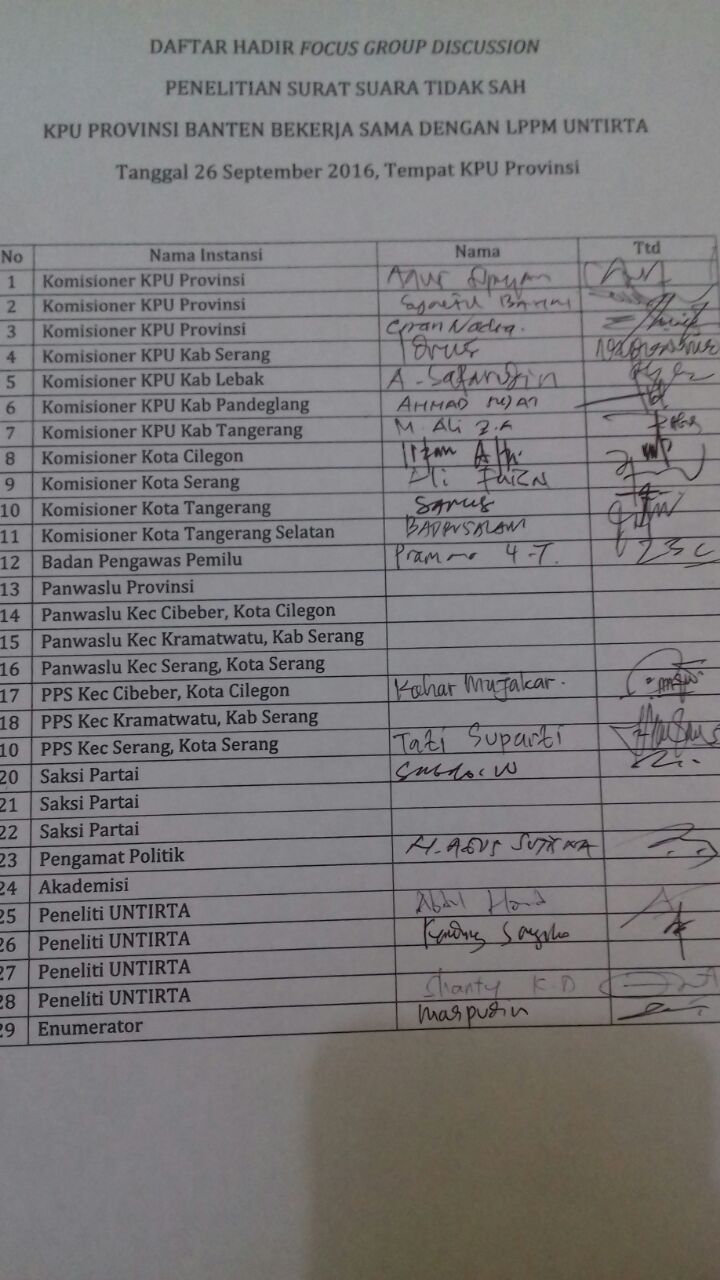 DAFTAR HADIR FOCUS GROUP DISCUSSION
PENELITIAN SURAT SUARA TIDAK SAH
KPU PROVINSI BANTEN BEKERJA SAMA DENGAN LPPM UNTIRTA
Tanggal 26 September 2016, Tempat KPU Provinsi
No Nama Instansi Nama Ttd
1 Komisioner KPU Provinsi
2 Komisioner KPU Provinsi
3 Komisioner KPU Provinsi
4 Komisioner KPU Kab Serang
5 Komisioner KPU Kab Lebak A.
6 Komisioner KPU Kab Pandeglang AHMAD
7 Komisioner KPU Kab Tangerang M. Ali Z.A
8 Komisioner Kota Cilegon
9 Komisioner Kota Serang
10 Komisioner Kota Tangerang
11 Komisioner Kota Tangerang Selatan BADRUSALAM
12 Badan Pengawas Pemilu
13 Panwaslu Provinsi
14 Panwaslu Kec Cibeber, Kota Cilegon
15 Panwaslu Kec Kramatwatu, Kab Serang
16 Panwaslu Kec Serang, Kota Serang
17 PPS Kec Cibeber, Kota Cilegon Kahar Muzakar.
18 PPS Kec Kramatwatu, Kab Serang
10 PPS Kec Serang, Kota Serang Tati Suparti
20 Saksi Partai
21 Saksi Partai
22 Saksi Partai
23 Pengamat Politik H. AGUS SUTISNA
24 Akademisi
25 Peneliti UNTIRTA
26 Peneliti UNTIRTA
27 Peneliti UNTIRTA
28 Peneliti UNTIRTA Shanty K.D
29 Enumerator Maspudin